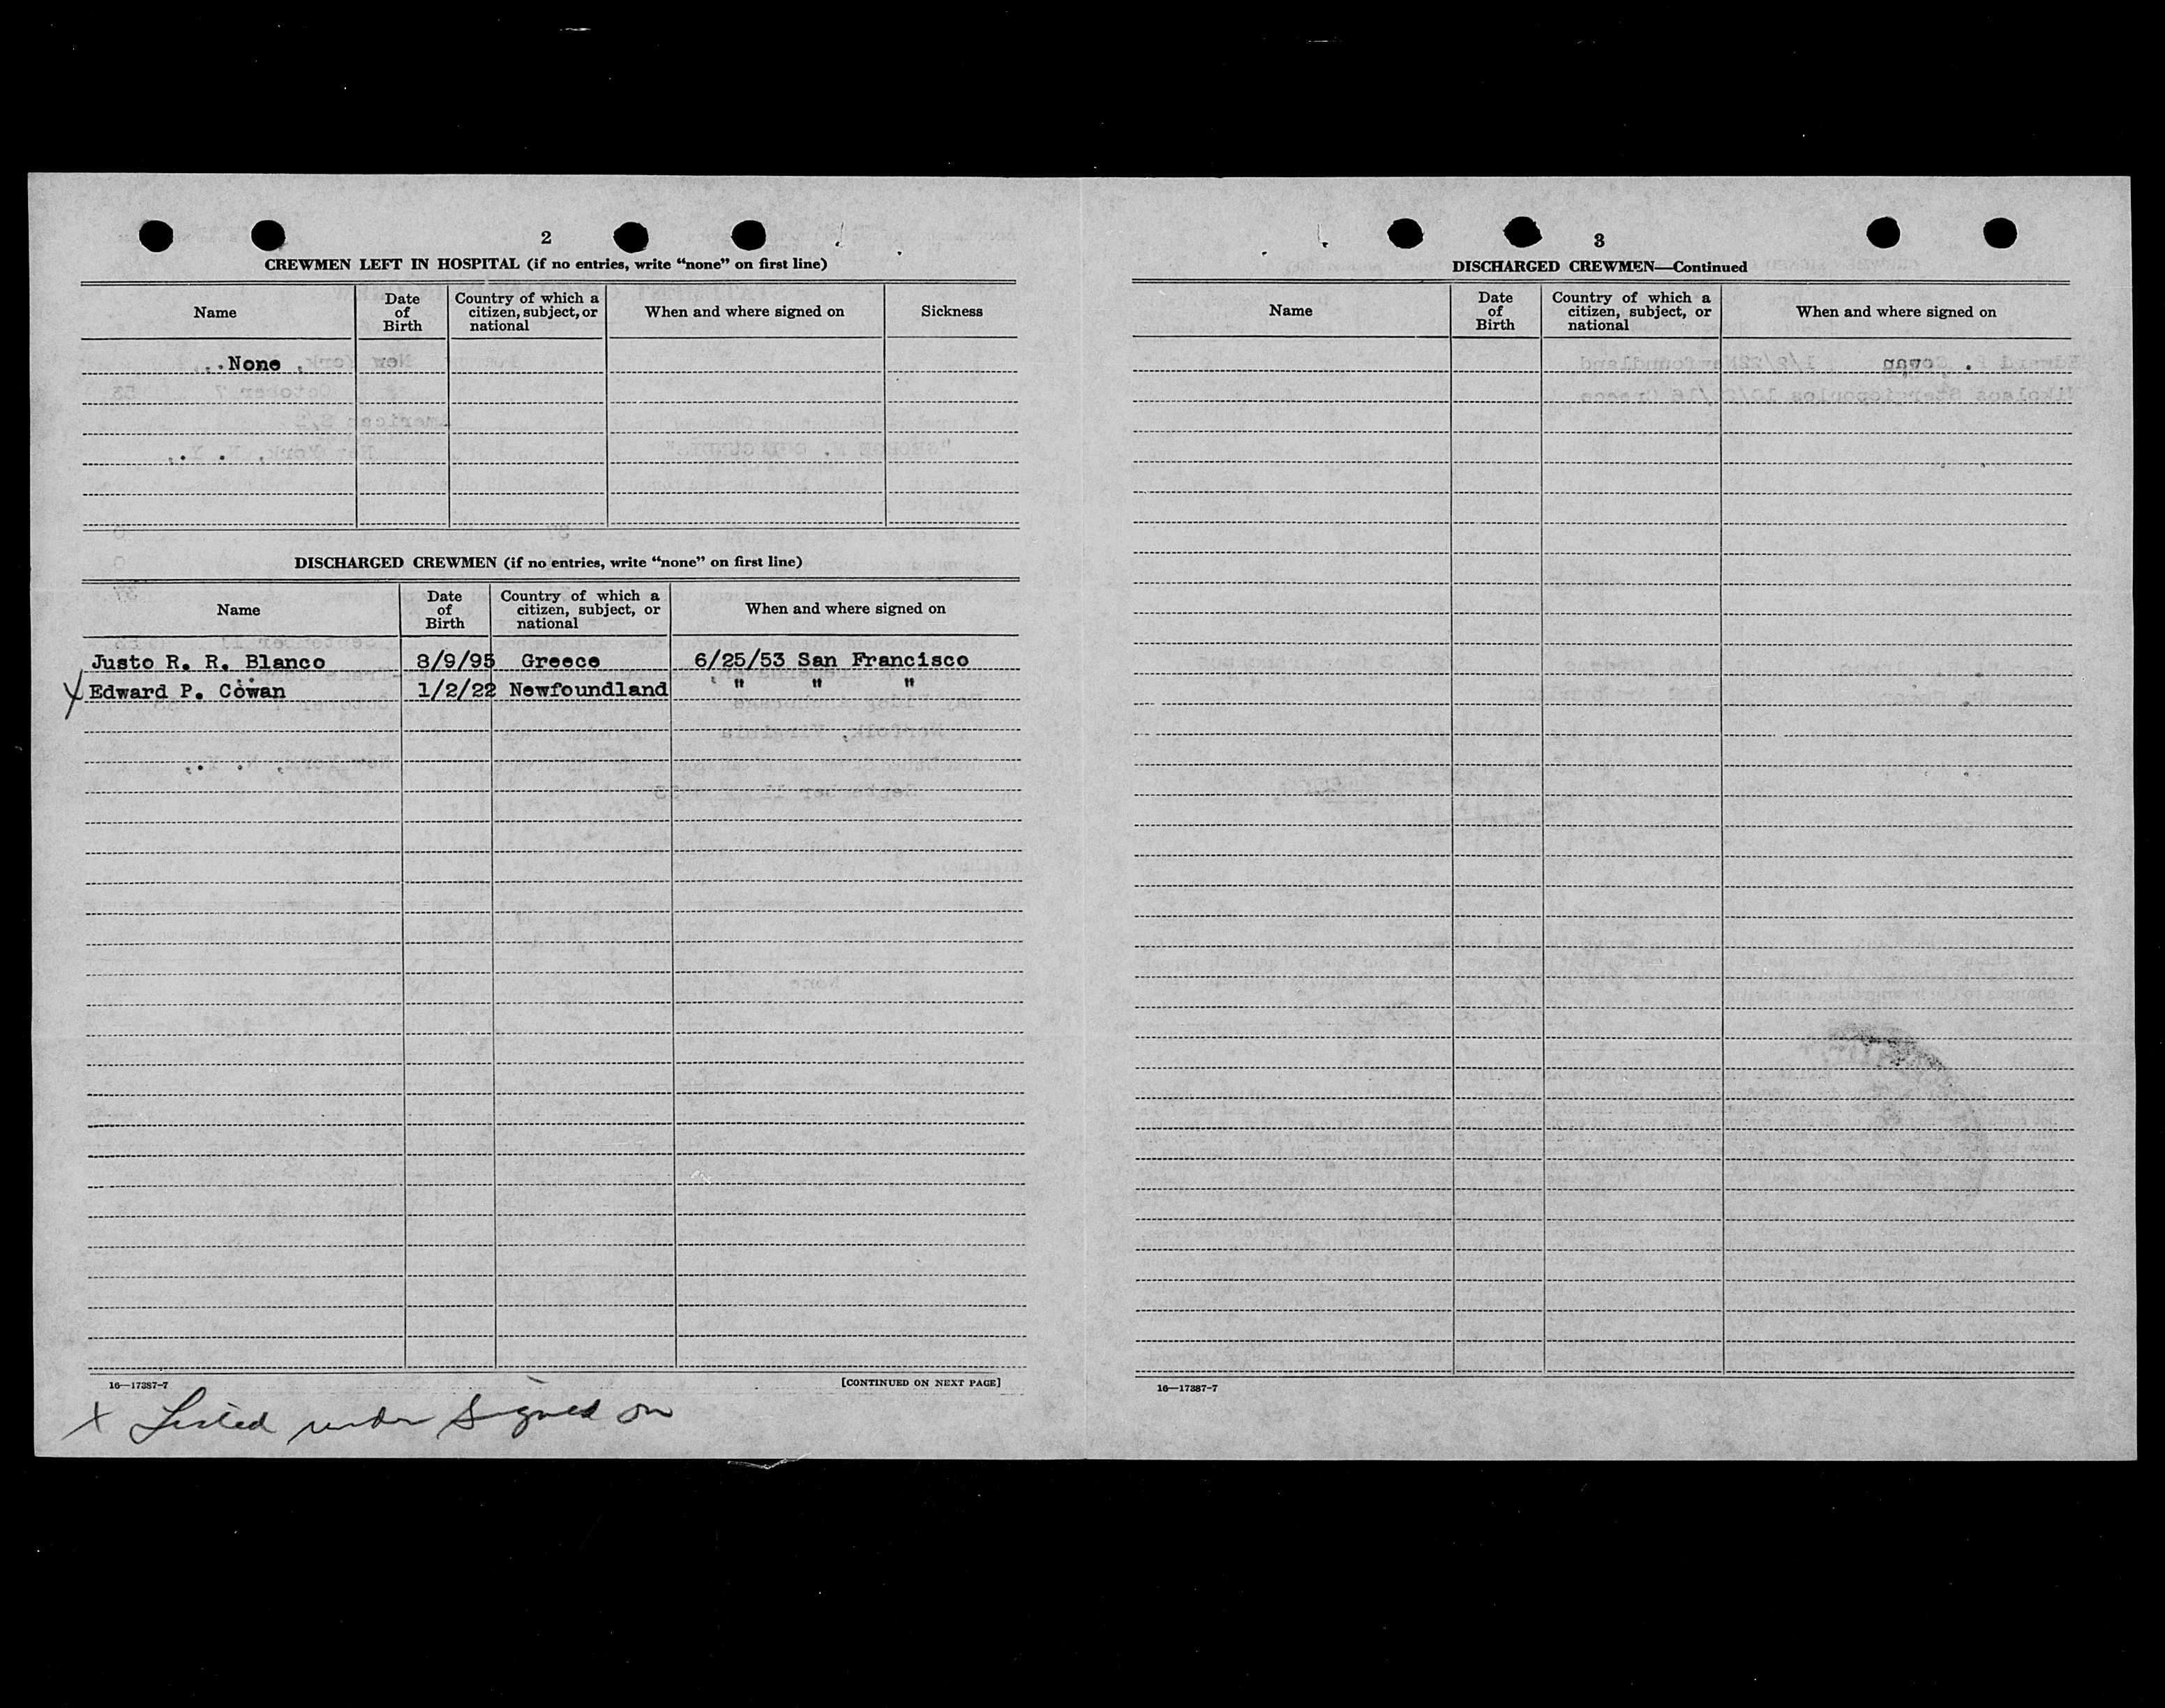 2
CREWMEN LEFT IN HOSPITAL (if no entries, write “none” on first line)
Name
Date of Birth
Country of which a citizen, subject, or national
When and where signed on
Sickness
None
DISCHARGED CREWMEN (if no entries, write “none” on first line)
Name
Date of Birth
Country of which a citizen, subject, or national
When and where signed on
Justo R. R. Blanco 8/9/95 Greece 6/25/53 San Francisco
X Edward P. Cowan 1/2/22 Newfoundland " " "
16—17387-7
[CONTINUED ON NEXT PAGE]
X Listed under Signed on
3
DISCHARGED CREWMEN—Continued
Name
Date of Birth
Country of which a citizen, subject, or national
When and where signed on
16—17387-7